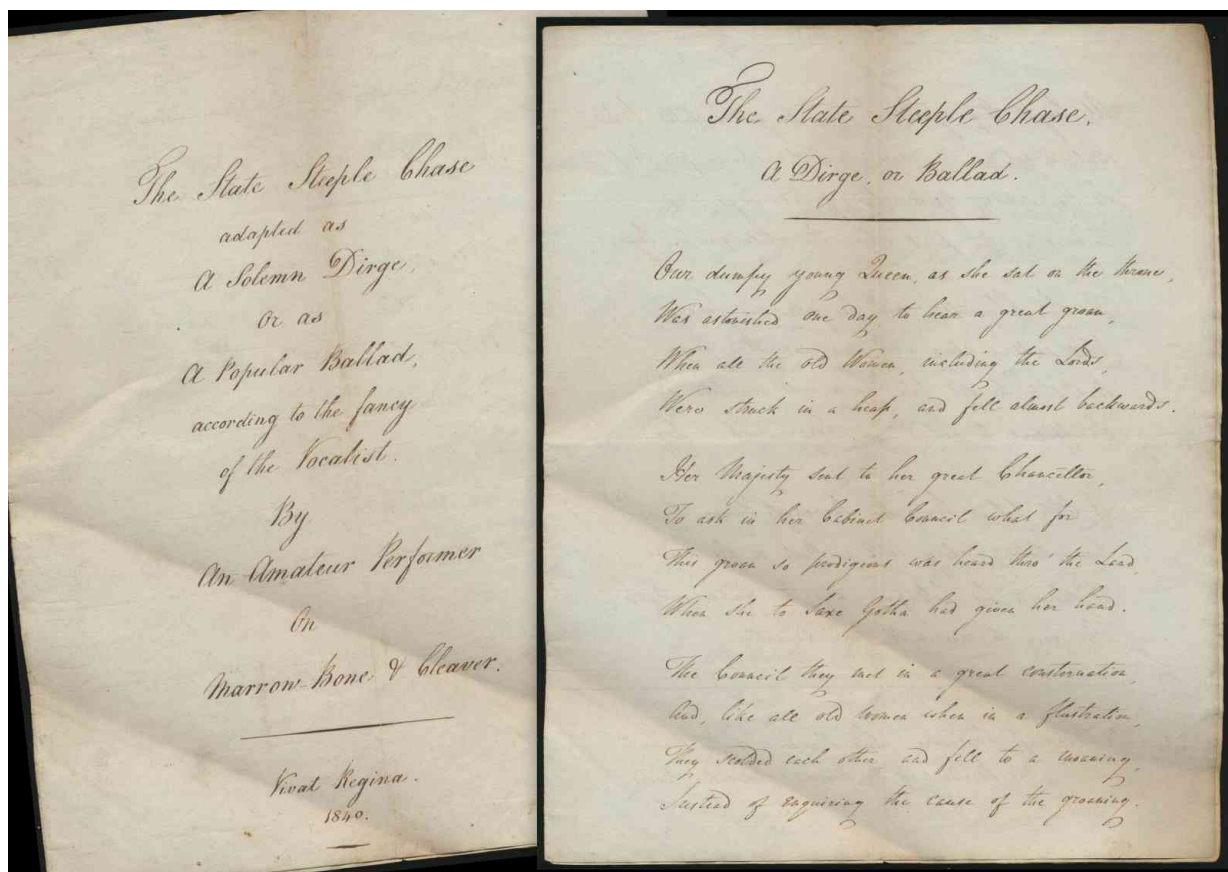 The State Steeple Chase
adapted as
A Solemn Dirge,
Or as
A Popular Ballad,
according to the fancy
of the Vocalist.
By
An Amateur Performer
On
Marrow-Bone & Cleaver.
Vivat Regina.
1840.
The State Steeple Chase.
A Dirge, or Ballad.
Our dumpy young Queen, as she sat on the throne,
Was astonished one day to hear a great groan,
When all the old Women, including the Lords,
Were struck in a heap, and fell almost backwards.
Her Majesty sent to her great Chancellor,
To ask in her Cabinet Council what for
This groan so prodigious was heard thro' the Land,
When she to Saxe Gotha had given her hand.
The Council they met in a great consternation,
And, like all old women when in a flustration,
They scolded each other and fell to a moaning,
Instead of enquiring the cause of the groaning.